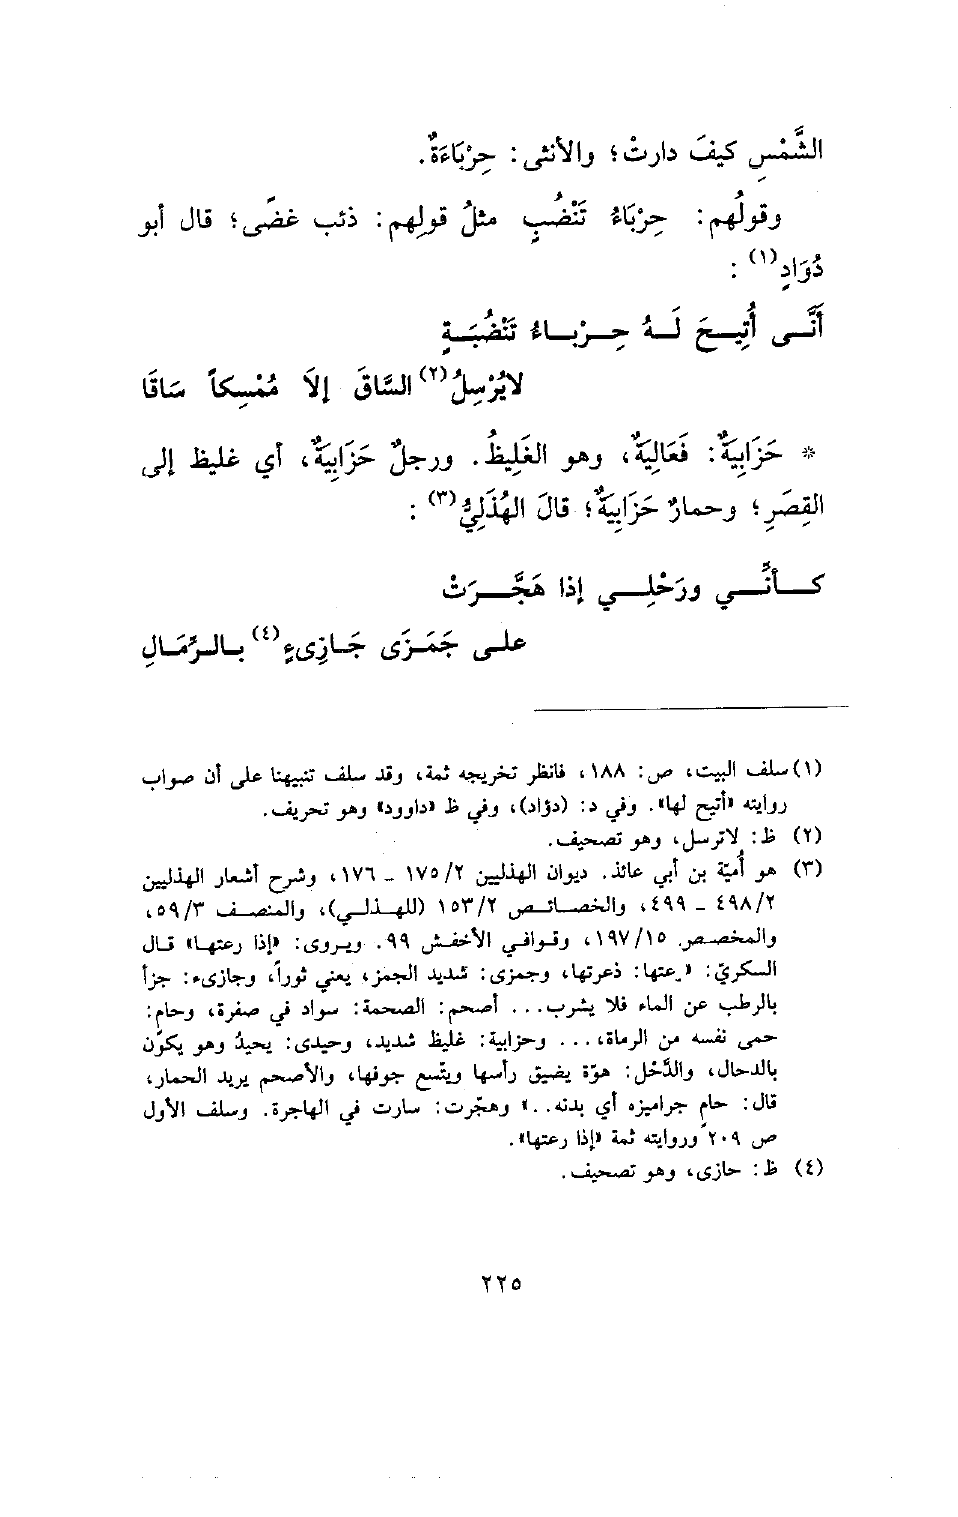 الشَّمْسِ كيفَ دارتْ؛ والأنثى: حِرْبَاءَةٌ.
وقولُهم: حِرْبَاءُ تَنْضُبٍ مثلُ قولِهم: ذئب غضًى؛ قال أبو
دُوَادٍ(١) :
أَنَّى أُتِيحَ لَهُ حِرْباءُ تَنْضُبَةٍ
لايُرْسِلُ(٢) السَّاقَ إلاَ مُمْسِكاً سَاقَا
* حَزَابِيَةٌ: فَعَالِيَةٌ، وهو الغَلِيظُ. ورجلٌ حَزَابِيَةٌ، أي غليظ إلى
القِصَرِ؛ وحمارٌ حَزَابِيَةٌ؛ قالَ الهُذَلِيُّ(٣) :
كأنِّي ورَحْلِي إذا هَجَّرَتْ
على جَمَزَى جَازِىءٍ(٤) بالرِّمَالِ
(١) سلف البيت، ص: ١٨٨، فانظر تخريجه ثمة، وقد سلف تنبيهنا على أن صواب
روايته «أتيح لها». وفي د: (دؤاد)، وفي ظ «داوود» وهو تحريف.
(٢) ظ: لاترسل، وهو تصحيف.
(٣) هو أُميّة بن أبي عائذ. ديوان الهذليين ١٧٥/٢ ـ ١٧٦، وشرح أشعار الهذليين
٤٩٨/٢ ـ ٤٩٩، والخصائص ١٥٣/٢ (للهذلي)، والمنصف ٥٩/٣،
والمخصص ١٩٧/١٥، وقوافي الأخفش ٩٩. ويروى: «إذا رعتها» قال
السكريّ: «رعتها: ذعرتها، وجمزى: شديد الجمز، يعني ثوراً، وجازىء: جزأ
بالرطب عن الماء فلا يشرب... أصحم: الصحمة: سواد في صفرة، وحام:
حمى نفسه من الرماة، ... وحزابية: غليظ شديد، وحيدى: يحيدُ وهو يكوّن
بالدحال، والدَّحْل: هوّة يضيق رأسها ويتّسع جوفها، والأصحم يريد الحمار،
قال: حام جراميزه أي بدنه..» وهجّرت: سارت في الهاجرة. وسلف الأول
ص ٢٠٩ وروايته ثمة «إذا رعتها».
(٤) ظ: حازى، وهو تصحيف.
٢٢٥